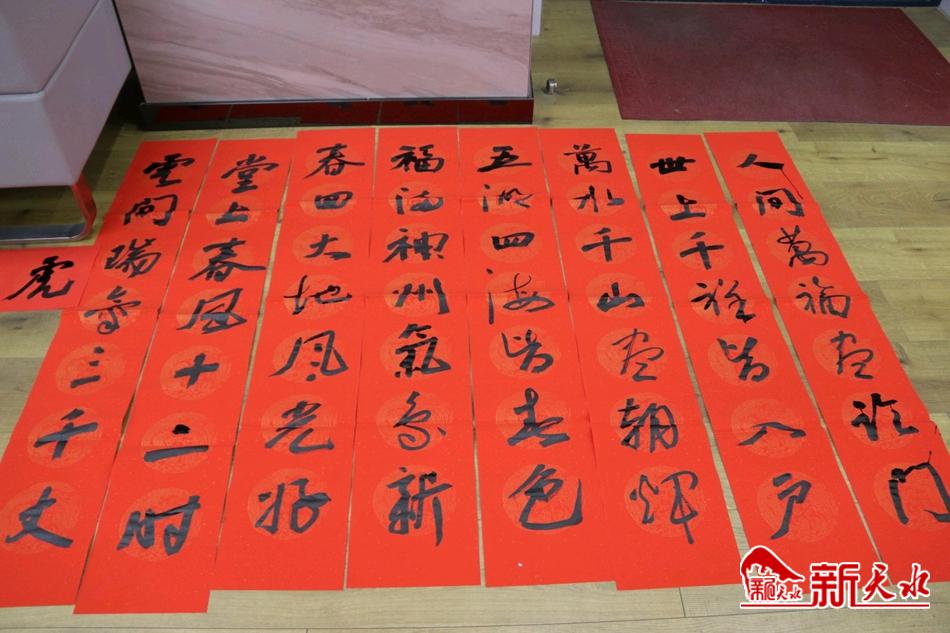 人間萬福盡臨門
世上千祥皆入户
萬水千山盡朝暉
五湖四海皆春色
福滿神州氣象新
春回大地風光好
堂上春風十二时
雲間瑞氣三千丈
虎
新天水